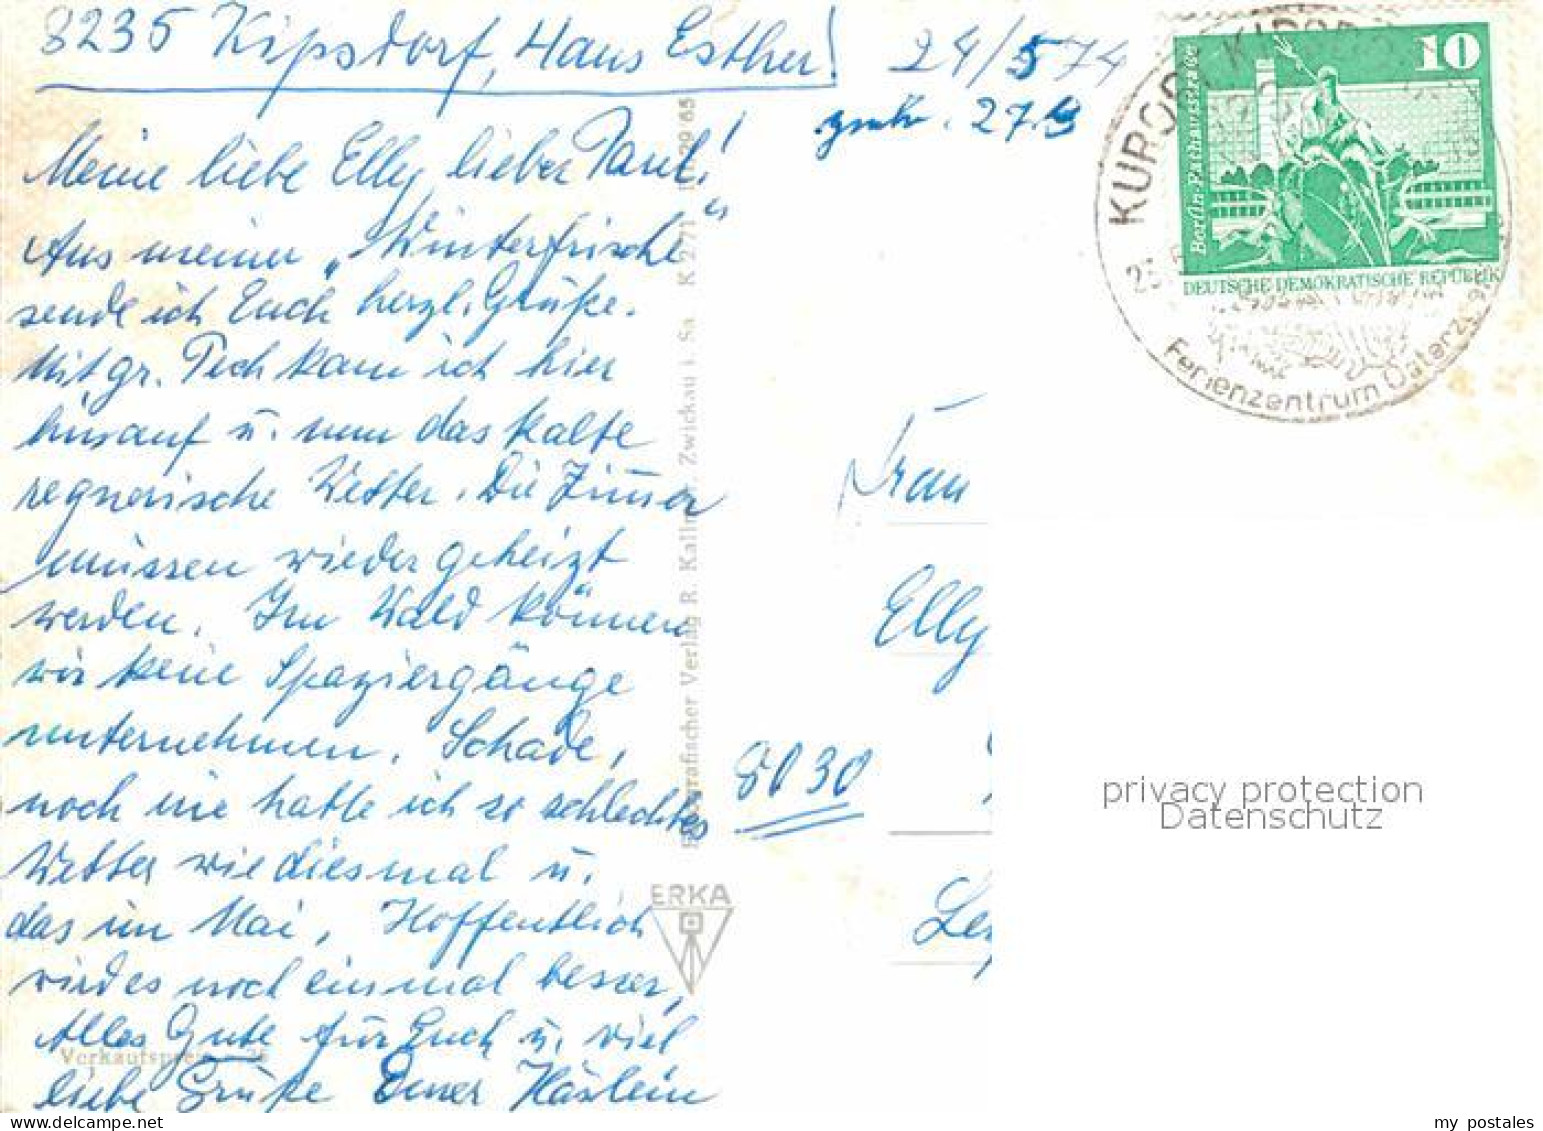 8235 Kipsdorf, Haus Esther!
24/5 74
27.5
Meine liebe Elly, lieber Paul!
Aus meiner „Winterfrische"
sende ich Euch herzl. Grüße.
Mit gr. Pech kam ich hier
hinauf u. nun das kalte
regnerische Wetter. Die Zimmer
müssen wieder geheizt
werden. Im Wald können
wir keine Spaziergänge
unternehmen. Schade,
noch nie hatte ich so schlechtes
Wetter wie diesmal u.
das im Mai, Hoffentlich
wird es noch einmal besser,
Alles Gute für Euch u. viel
liebe Grüße Euer Häslein
Verkaufspreis
Verlag R. Zwickau i. Sa K 2771
ERKA
Frau
Elly
8030
10
Berlin-Fischerinsel
DEUTSCHE DEMOKRATISCHE REPUBLIK
KURORT KIPSDORF
Ferienzentrum Osterzgeb
privacy protection
Datenschutz
my postales